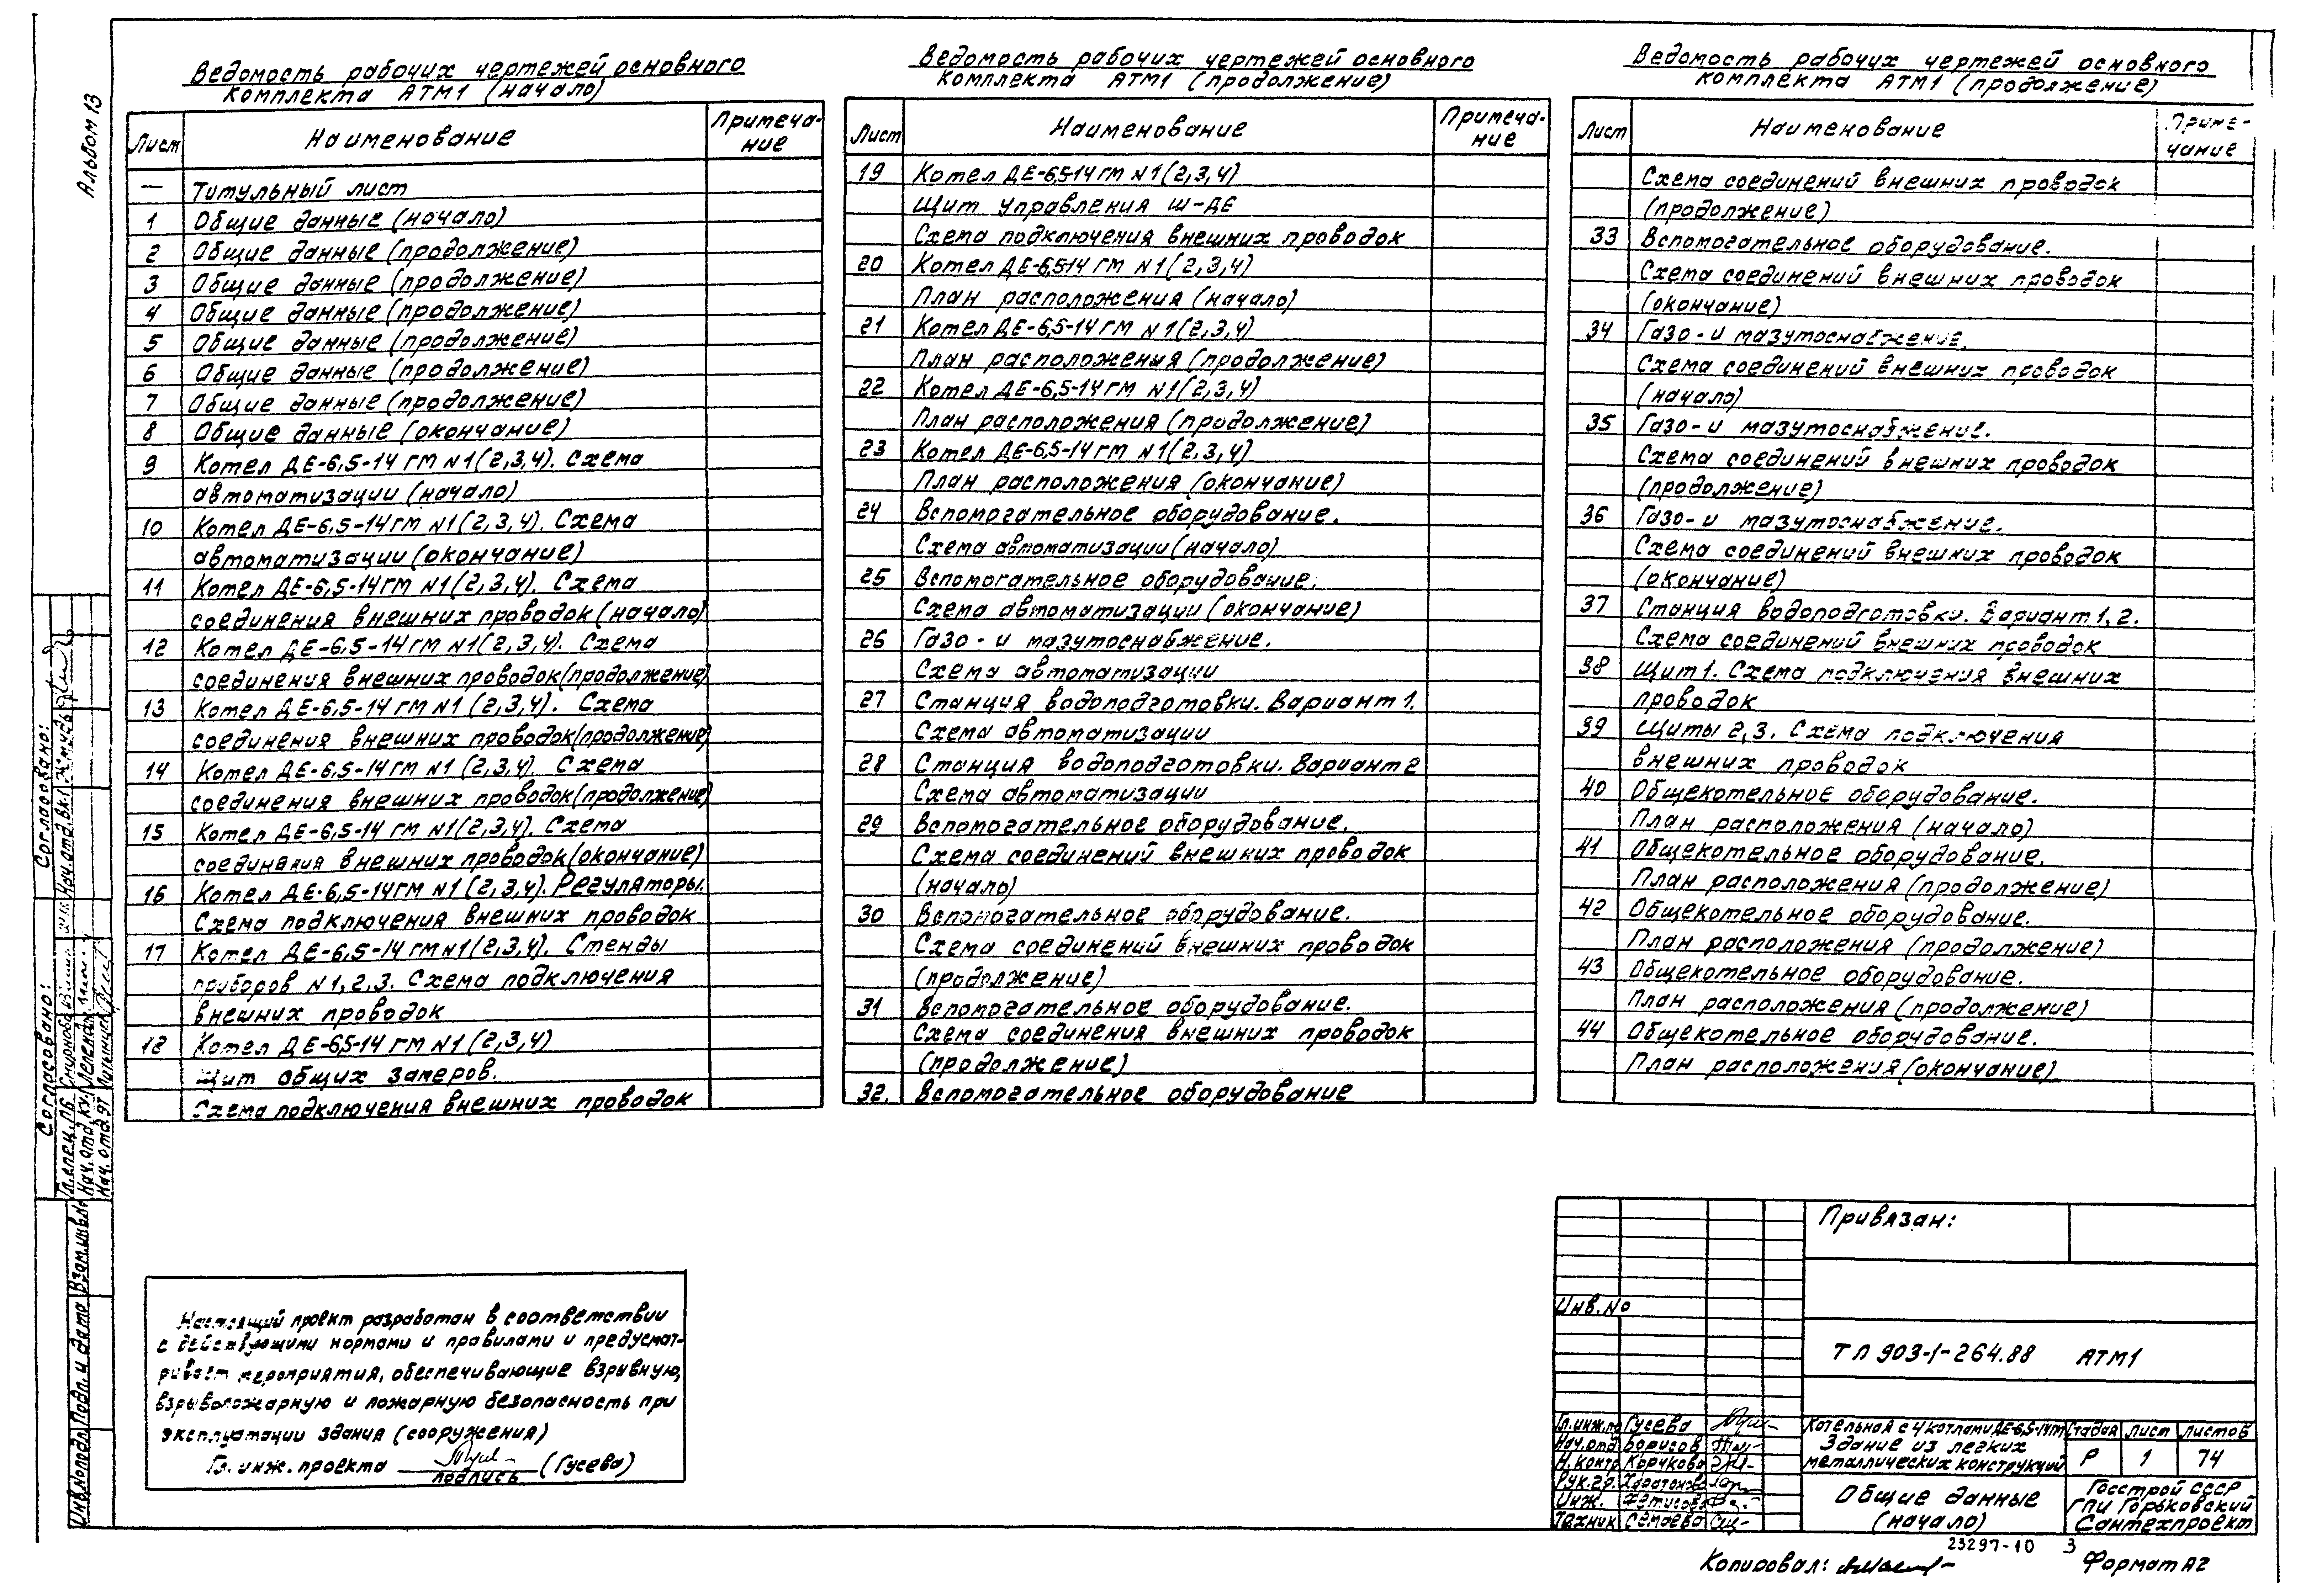 Альбом 13
Ведомость рабочих чертежей основного
комплекта АТМ1 (начало)
Лист Наименование Примеча-
ние
— Титульный лист
1 Общие данные (начало)
2 Общие данные (продолжение)
3 Общие данные (продолжение)
4 Общие данные (продолжение)
5 Общие данные (продолжение)
6 Общие данные (продолжение)
7 Общие данные (продолжение)
8 Общие данные (окончание)
9 Котел ДЕ-6,5-14 ГМ N1(2,3,4). Схема
автоматизации (начало)
10 Котел ДЕ-6,5-14ГМ N1(2,3,4). Схема
автоматизации (окончание)
11 Котел ДЕ-6,5-14ГМ N1(2,3,4). Схема
соединения внешних проводок (начало)
12 Котел ДЕ-6,5-14ГМ N1(2,3,4). Схема
соединения внешних проводок(продолжение)
13 Котел ДЕ-6,5-14 ГМ N1 (2,3,4). Схема
соединения внешних проводок(продолжение)
14 Котел ДЕ-6,5-14 ГМ N1 (2,3,4). Схема
соединения внешних проводок(продолжение)
15 Котел ДЕ-6,5-14 ГМ N1(2,3,4). Схема
соединения внешних проводок(окончание)
16 Котел ДЕ-6,5-14ГМ N1 (2,3,4). Регуляторы.
Схема подключения внешних проводок
17 Котел ДЕ-6,5-14 ГМ N1(2,3,4). Стенды
приборов N1,2,3. Схема подключения
внешних проводок
18 Котел ДЕ-6,5-14 ГМ N1 (2,3,4)
Щит общих замеров.
Схема подключения внешних проводок
Ведомость рабочих чертежей основного
комплекта АТМ1 (продолжение)
Лист Наименование Примеча-
ние
19 Котел ДЕ-6,5-14 ГМ N1(2,3,4)
Щит управления Ш-ДЕ
Схема подключения внешних проводок
20 Котел ДЕ-6,5-14 ГМ N1(2,3,4)
План расположения (начало)
21 Котел ДЕ-6,5-14 ГМ N1(2,3,4)
План расположения (продолжение)
22 Котел ДЕ-6,5-14ГМ N1(2,3,4)
План расположения (продолжение)
23 Котел ДЕ-6,5-14 ГМ N1(2,3,4)
План расположения (окончание)
24 Вспомогательное оборудование.
Схема автоматизации (начало)
25 Вспомогательное оборудование.
Схема автоматизации (окончание)
26 Газо- и мазутоснабжение.
Схема автоматизации
27 Станция водоподготовки. Вариант 1.
Схема автоматизации
28 Станция водоподготовки. Вариант 2
Схема автоматизации
29 Вспомогательное оборудование.
Схема соединений внешних проводок
(начало)
30 Вспомогательное оборудование.
Схема соединений внешних проводок
(продолжение)
31 Вспомогательное оборудование.
Схема соединения внешних проводок
(продолжение)
32. Вспомогательное оборудование
Ведомость рабочих чертежей основного
комплекта АТМ1 (продолжение)
Лист Наименование Приме-
чание
Схема соединений внешних проводок
(продолжение)
33 Вспомогательное оборудование.
Схема соединений внешних проводок
(окончание)
34 Газо- и мазутоснабжение.
Схема соединений внешних проводок
(начало)
35 Газо- и мазутоснабжение.
Схема соединений внешних проводок
(продолжение)
36 Газо- и мазутоснабжение.
Схема соединений внешних проводок
(окончание)
37 Станция водоподготовки. Вариант 1, 2.
Схема соединений внешних проводок
38 Щит 1. Схема подключения внешних
проводок
39 Щиты 2, 3. Схема подключения
внешних проводок
40 Общекотельное оборудование.
План расположения (начало)
41 Общекотельное оборудование.
План расположения (продолжение)
42 Общекотельное оборудование.
План расположения (продолжение)
43 Общекотельное оборудование.
План расположения (продолжение)
44 Общекотельное оборудование.
План расположения (окончание)
Согласовано:
Нач.отд.ВК1
Согласовано:
Гл.спец.ПБ Смирнова
Нач.отд.КУ
Нач.отд.ЭТ
Инв.N подл. Подп. и дата Взам.инв.N
Настоящий проект разработан в соответствии
с действующими нормами и правилами и предусмат-
ривает мероприятия, обеспечивающие взрывную,
взрывопожарную и пожарную безопасность при
эксплуатации здания (сооружения)
Гл. инж. проекта (Гусева)
подпись
Привязан:
Инв. No
ТП 903-1-264.88 АТМ1
Гл.инж.пр Гусева
Нач.отд. Борисов
Н.контр Корукова
Рук.гр.
Инж. Фетисова
Техник Семаева
Котельная с 4 котлами ДЕ-6,5-14ГМ
Здание из легких
металлических конструкций
Стадия Лист Листов
Р 1 74
Общие данные
(начало)
Госстрой СССР
ГПИ Горьковский
Сантехпроект
23297-10 3
Копировал: Формат А2